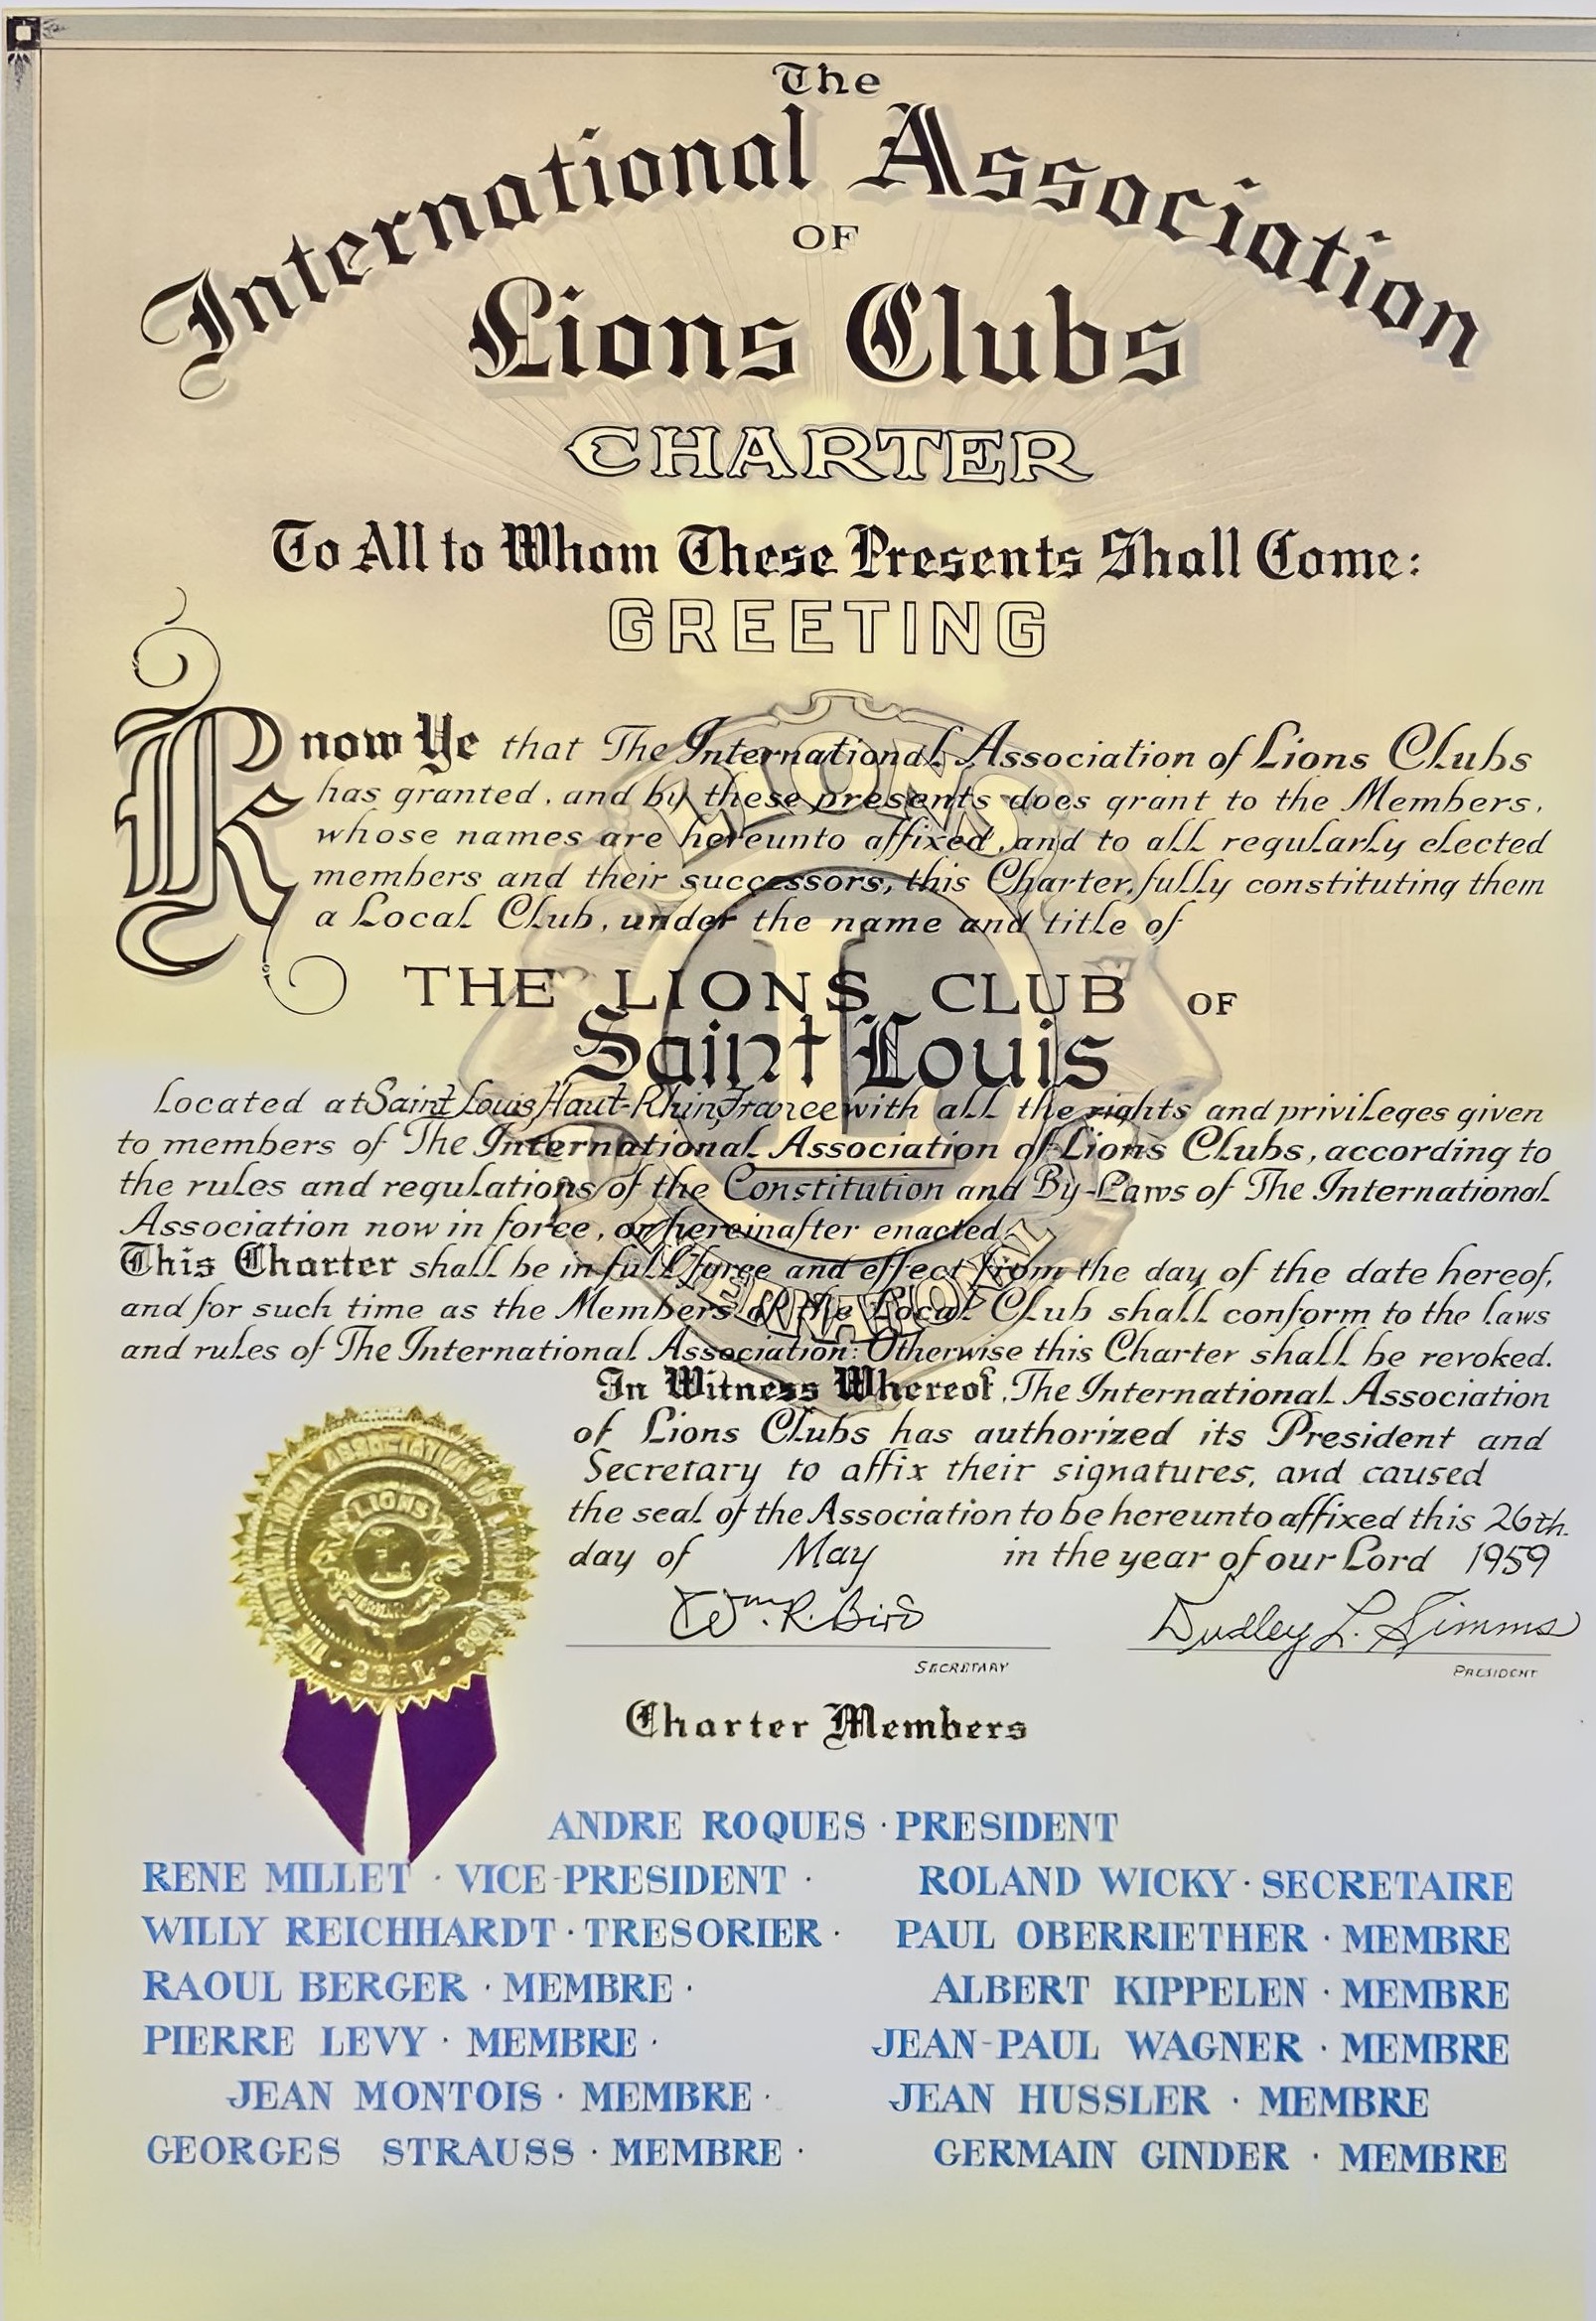 The
International Association
OF
Lions Clubs
CHARTER
To All to Whom These Presents Shall Come:
GREETING
Know Ye that The International Association of Lions Clubs
has granted, and by these presents does grant to the Members,
whose names are hereunto affixed, and to all regularly elected
members and their successors, this Charter, fully constituting them
a Local Club, under the name and title of
THE LIONS CLUB OF
Saint Louis
Located at Saint Louis, Haut-Rhin, France with all the rights and privileges given
to members of The International Association of Lions Clubs, according to
the rules and regulations of the Constitution and By-Laws of The International
Association now in force, or hereinafter enacted.
This Charter shall be in full force and effect from the day of the date hereof,
and for such time as the Members of the Local Club shall conform to the laws
and rules of The International Association: Otherwise this Charter shall be revoked.
In Witness Whereof, The International Association
of Lions Clubs has authorized its President and
Secretary to affix their signatures, and caused
the seal of the Association to be hereunto affixed this 26th.
day of May in the year of our Lord 1959
Wm. R. Bird Dudley L. Simms
SECRETARY PRESIDENT
LIONS
INTERNATIONAL
INTERNATIONAL ASSOCIATION OF LIONS CLUBS
LIONS
L
SEAL
Charter Members
ANDRE ROQUES · PRESIDENT
RENE MILLET · VICE-PRESIDENT · ROLAND WICKY · SECRETAIRE
WILLY REICHHARDT · TRESORIER · PAUL OBERRIETHER · MEMBRE
RAOUL BERGER · MEMBRE · ALBERT KIPPELEN · MEMBRE
PIERRE LEVY · MEMBRE · JEAN-PAUL WAGNER · MEMBRE
JEAN MONTOIS · MEMBRE · JEAN HUSSLER · MEMBRE
GEORGES STRAUSS · MEMBRE · GERMAIN GINDER · MEMBRE